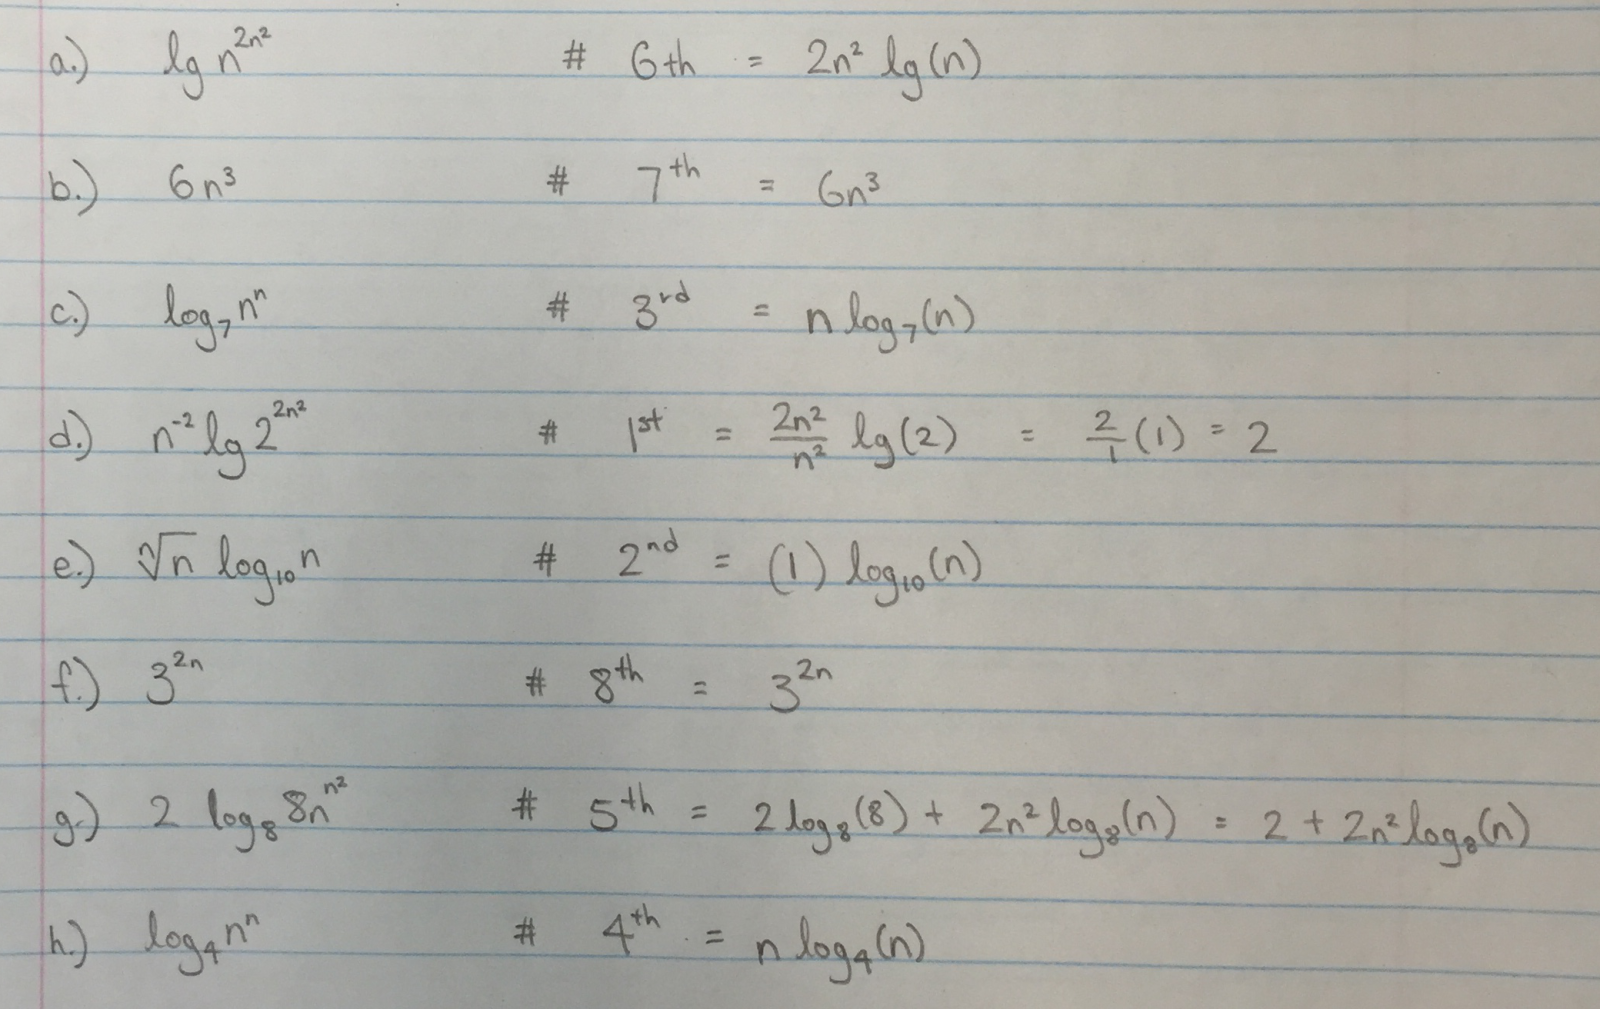 a.) lg n^{2n²} # 6th = 2n² lg(n)
b.) 6n³ # 7^{th} = 6n³
c.) log₇ nⁿ # 3^{rd} = n log₇(n)
d.) n⁻² lg 2^{2n²} # 1^{st} = 2n²/n² lg(2) = 2/1 (1) = 2
e.) ⁿ√n log₁₀ n # 2^{nd} = (1) log₁₀(n)
f.) 3^{2n} # 8^{th} = 3^{2n}
g.) 2 log₈ 8n^{n²} # 5^{th} = 2 log₈(8) + 2n² log₈(n) = 2 + 2n² log₈(n)
h.) log₄ nⁿ # 4^{th} = n log₄(n)